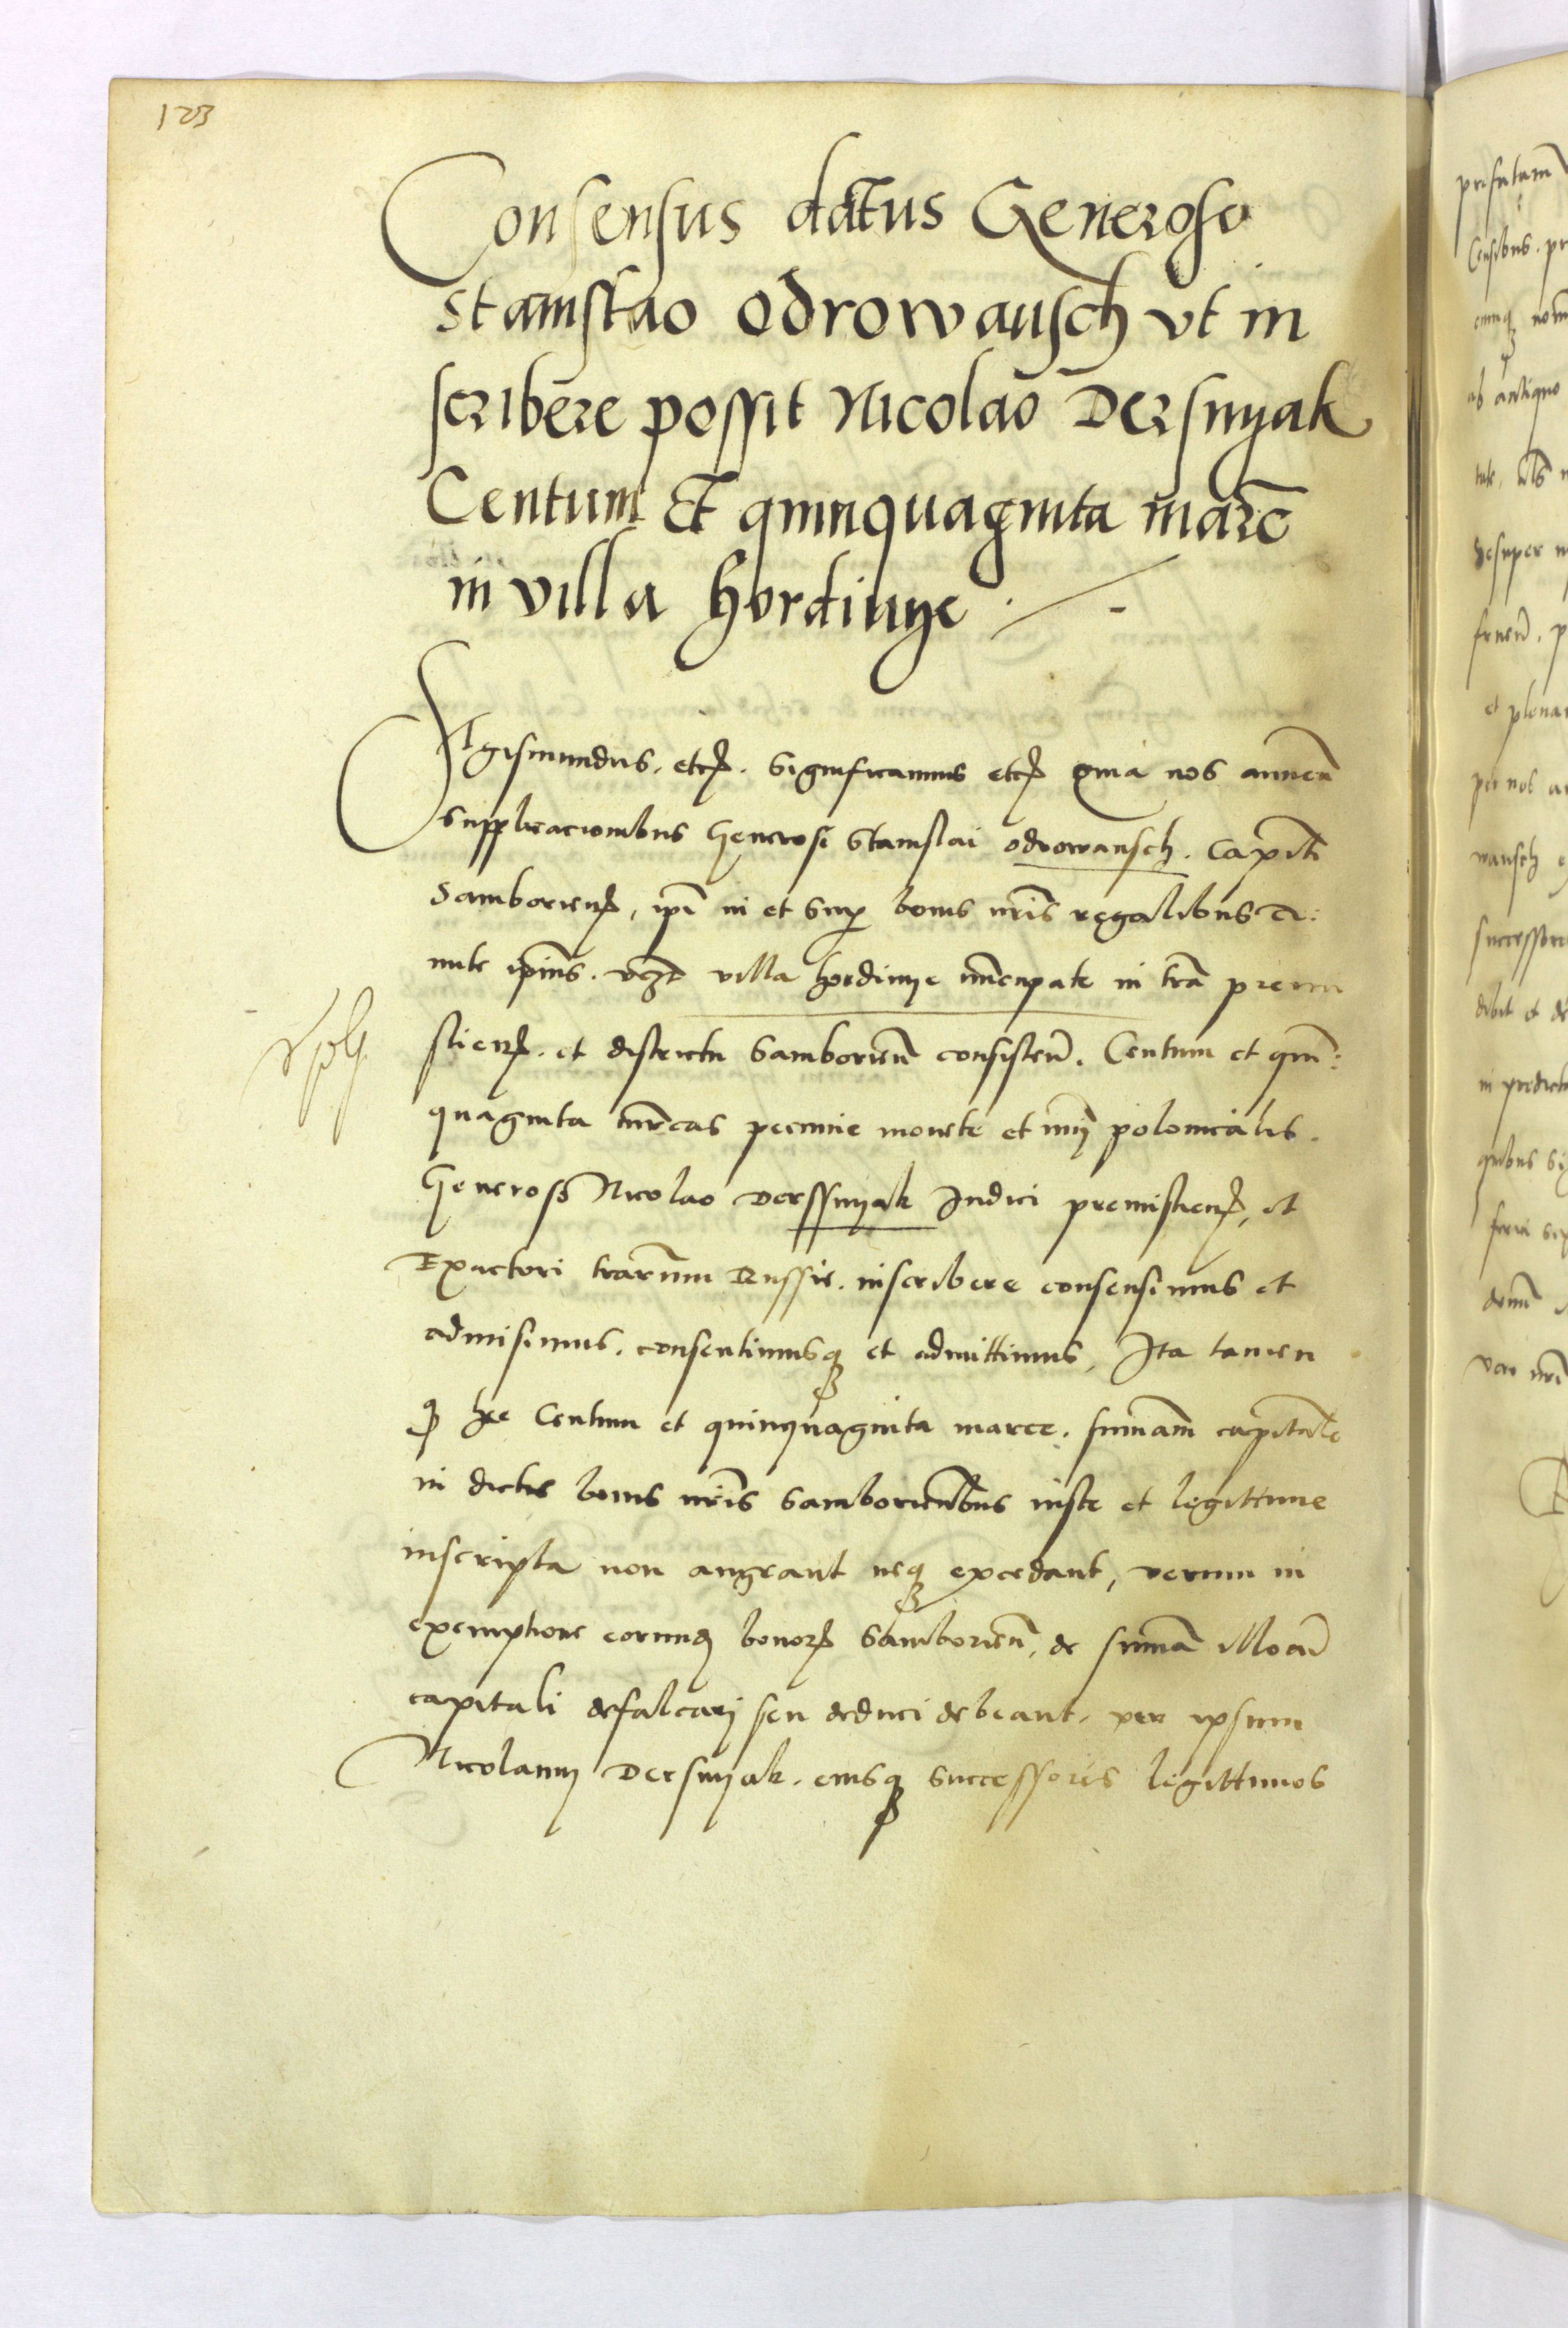 123
Consensus datus Generoso
Stanislao Odrowansch vt in
scribere possit Nicolao Dersnyak
Centum Et quinquaginta marc̄
in villa hordinye
Sigismundus. etc. Significamus etc quia nos annuen̄
supplicacionibus Generosi Stanislai Odrowansch. Capiti
Samborien̄, ipī in et sup bonis nr̄is regalibus
ipīus. vcz̄ villa hordinye nūcupate in trā premi
slien̄. et districtu Samborien̄ consisten̄. Centum et quin:
quaginta mr̄cas pecunie monete et nūi polonicalis.
Generoso Nicolao Derssnyak Iudici premislien̄, et
Exactori trarūm Russie. inscribere consensimus et
admisimus. consentimusq et admittimus, Ita tamen
q hee Centum et quinquaginta marce. summam capitale
in dictis bonis nr̄is Samborien̄bus iuste et legittime
inscripta non augeant neq excedant, verum in
exemptione eorund bonor Samborien̄, de summa illoru
capitali defalcari seu deduci debeant. per ipsum
Nicolaum Dersnyak. eiusq successores legittimos
prefatam
Censibus. pr
ab antiquo
desuper
et plena
per nos
wansch
successor
dibit et de
in predict
quibus